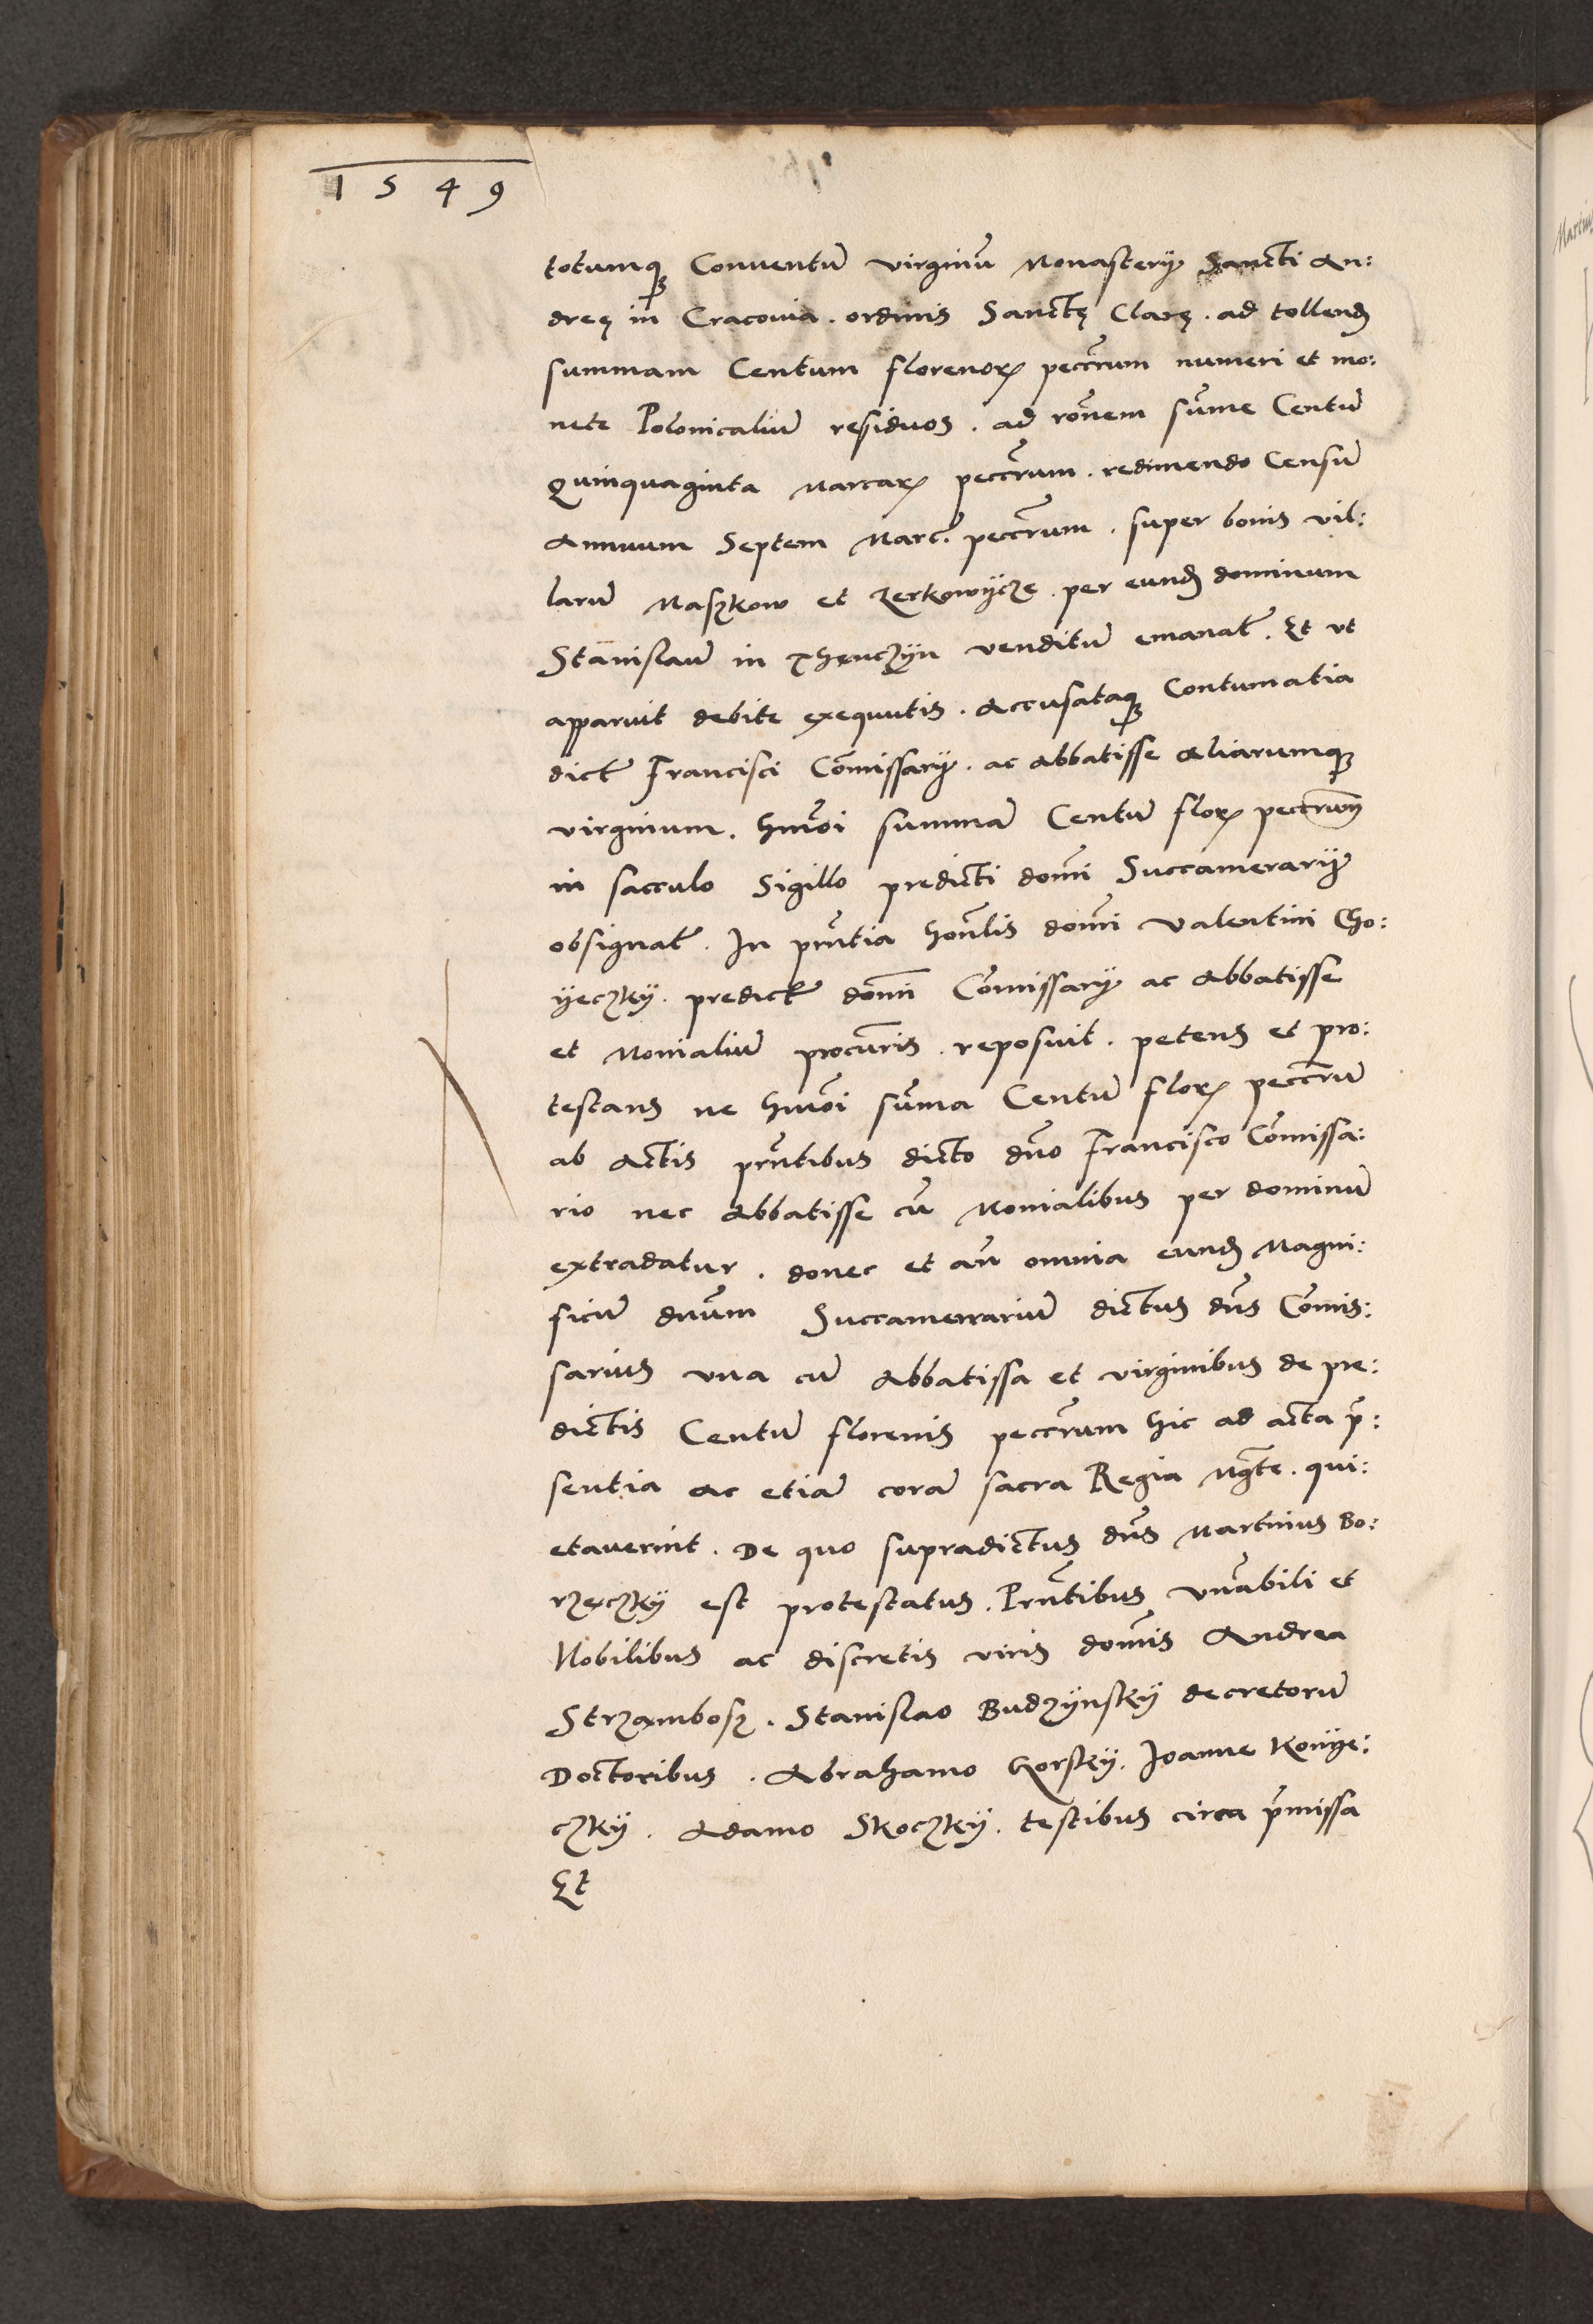 1549
totumq&#x301; Conuentū virginū Monasterij Sancti An:
dreę in Cracouia . ordinis Sanctę Clarę . ad tollend
summam Centum florenor peccn̄rum numeri et mo:
nete Polonicaliū residuos . ad rōnem sūme Centū
Quinquaginta Marcar peccn̄rum . redimendo Censū
Annuum Septem Marc. peccn̄rum . super bonis vil:
larū Maszkow et Zerkowÿcze . per eund dominum
Stanislaū in Thenczÿn venditū emanat . Et vt
apparuit debite exequutis . Accusataq Contumatia
dict Francisci Cōmissarÿ . ac Abbatisse Aliarumq
virginum . hmōi summā Centū flor peccn̄rum
in sacculo Sigillo predicti domī Succamerarÿ
obsignat . In pn̄tia honllis domī Valentini Cho:
ÿeczkÿ . predict domī Cōmissarÿ ac Abbatisse
et Monialiū procuris . reposuit . petens et pro:
testans ne hmōi sūma Centū flor peccn̄rū
ab Actis pn̄tibus dicto dn̄o Francisco Cōmissa:
rio nec Abbatisse cū Monialibus per dominū
extradatur . donec et an̄ omnia eund Magni:
ficū dn̄um Succamerariū dictus dn̄s Cōmis:
sarius vna cū Abbatissa et virginibus de pre:
dictis Centū florenis peccn̄rum hic ad acta p̄:
sentia Ac etiā corā sacra Regia Mgte . qui:
etauerint . De quo supradictus dn̄s Martinus Bo:
rzęczkÿ est protestatus . Pn̄tibus vn̄abili et
Nobilibus ac discretis viris domis Andrea
Strzambosz . Stanislao Budzÿnskÿ decretorū
Doctoribus . Abrahamo Gorskÿ . Joanne Konÿe:
czkÿ . Adamo Skoczkÿ . testibus circa p̄missa
Et